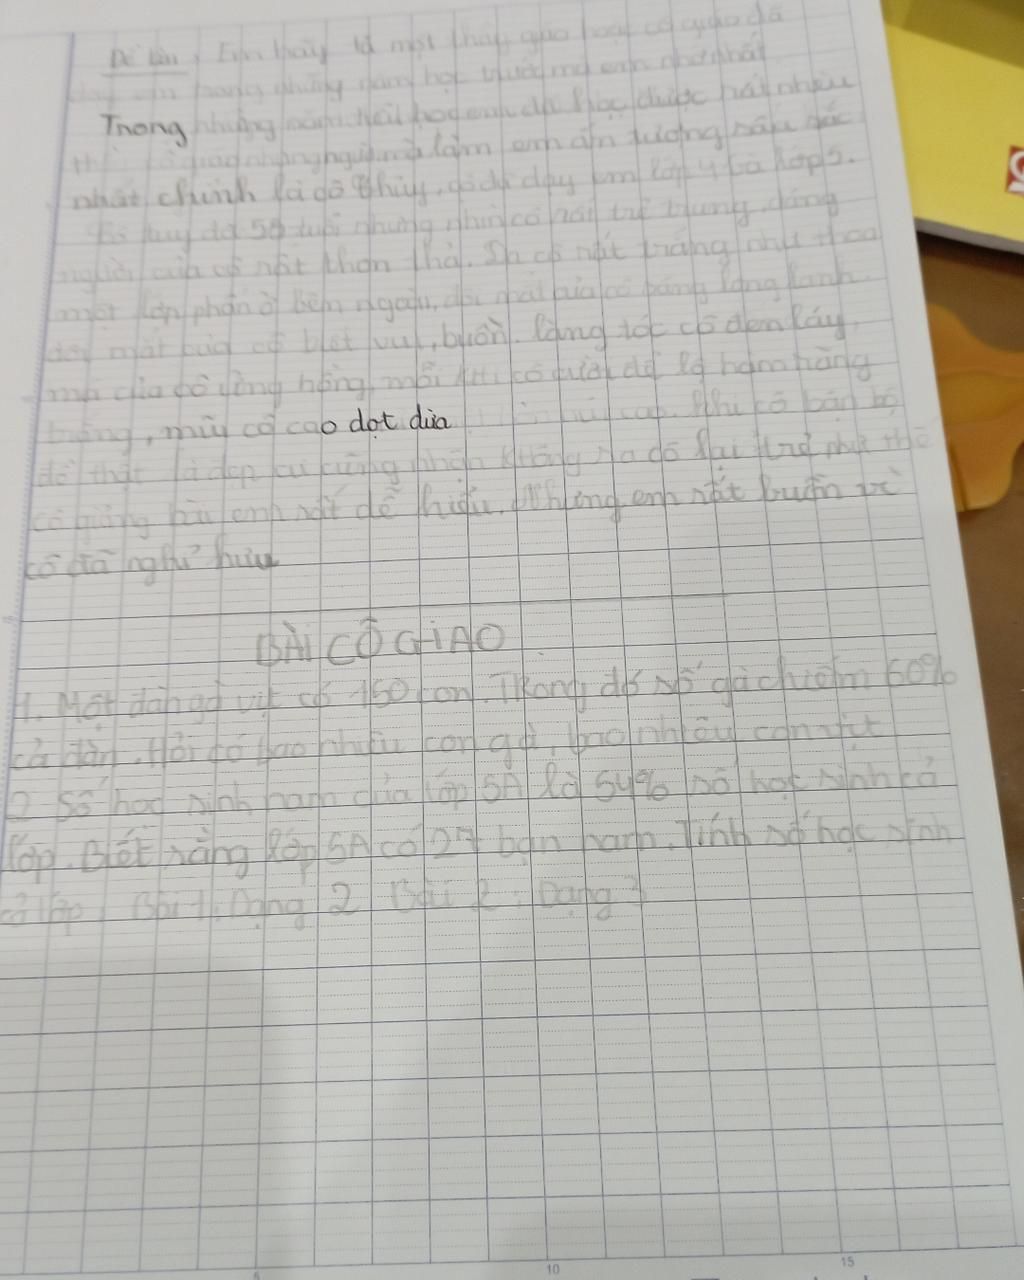 Đề bài: Em hãy tả một thầy giáo hoặc cô giáo đã
dạy em trong những năm học trước mà em nhớ nhất
Trong những năm học em đã học được rất nhiều
thầy cô giáo nhưng người mà làm em ấn tượng sâu sắc
nhất chính là cô Thủy, cô đã dạy em lớp 4 và lớp 5.
Cô tuy đã 50 tuổi nhưng nhìn cô rất trẻ trung, dáng
người của cô rất thon thả. Da cô rất trắng như thoa
một lớp phấn ở bên ngoài, đôi mắt của cô long lanh
đôi mắt của cô biết vui, buồn. làng tóc cô đen láy,
má của cô ửng hồng, mỗi khi cô cười để lộ hàm răng
trắng, mũi cô cao dọt dừa Khi cô
để thật là đẹp ai cũng nhận không ra cô lại trẻ như thế
cô giảng bài em rất dễ hiểu. Nhưng em rất buồn vì
cô đã nghỉ hưu
BÀI CÔ GIAO
1. Một đàn gà vịt có 150 con. Trong đó số gà chiếm 60%
cả đàn. Hỏi có bao nhiêu con gà, bao nhiêu con vịt
2 Số học sinh nam của lớp 5A là 54% số học sinh cả
lớp. Biết rằng lớp 5A có 27 bạn nam. Tính số học sinh
cả lớp. Bài 1: Dạng 2 Bài 2: Dạng 3
5
10
15